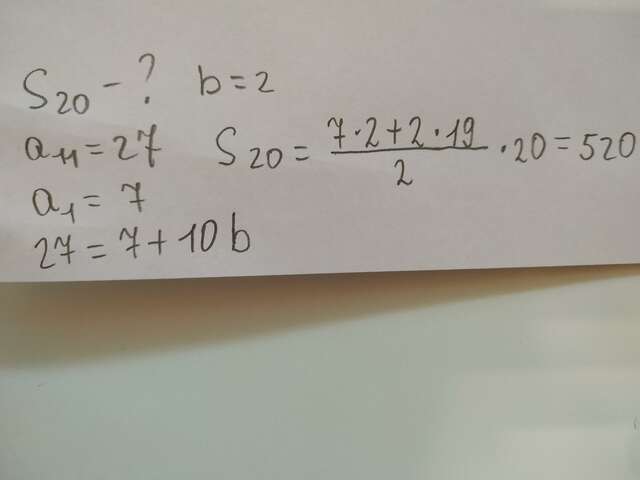 S₂₀ - ? b = 2
a₁₁ = 27 S₂₀ = (7·2+2·19)/2 · 20 = 520
a₁ = 7
27 = 7 + 10 b